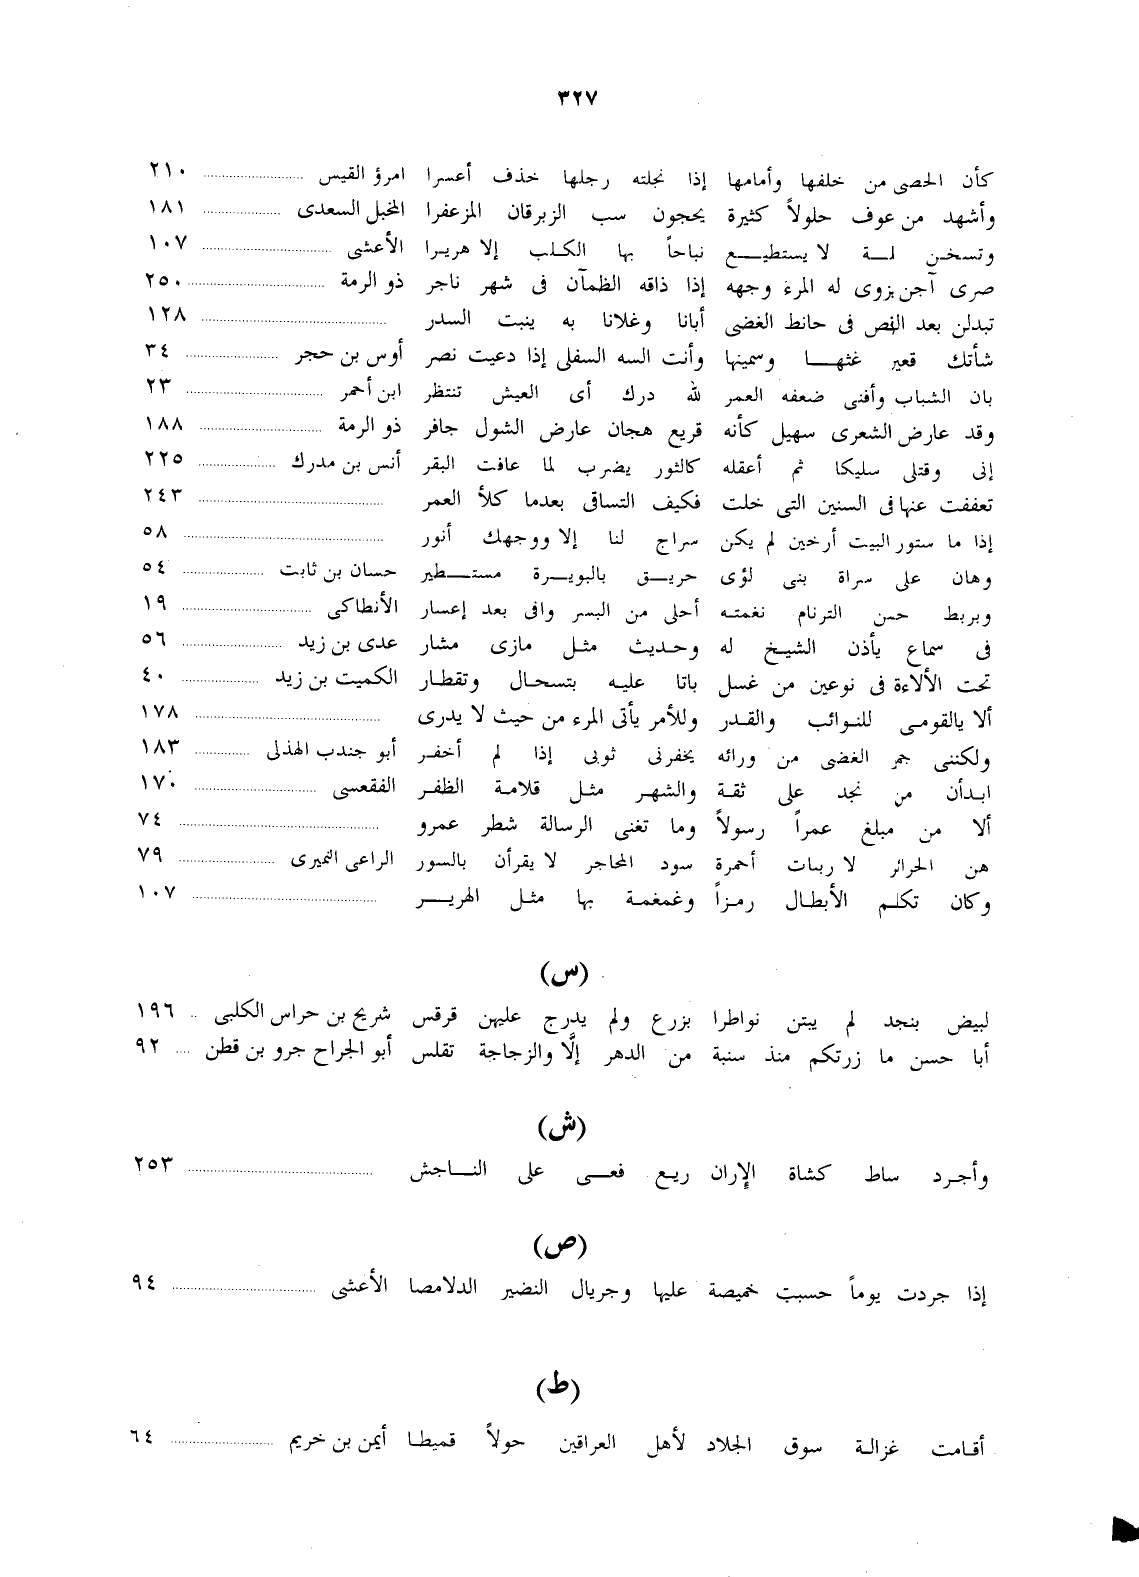 ٣٢٧
كأن الحصى من خلفها وأمامها إذا نجلته رجلها خذف أعسرا امرؤ القيس ٢١٠
وأشهد من عوف حلولاً كثيرة يحجون سب الزبرقان المزعفرا المخبل السعدى ١٨١
وتسخن لة لا يستطيع نباحاً بها الكلب إلا هريرا الأعشى ١٠٧
صرى آجن يزوى له المرء وجهه إذا ذاقه الظمآن فى شهر ناجر ذو الرمة ٢٥٠
تبدلن بعد الفص فى حانط الغضى أبانا وغلانا به ينبت السدر ١٢٨
شأتك قعير غثها وسمينها وأنت السه السفلى إذا دعيت نصر أوس بن حجر ٣٤
بان الشباب وأفنى ضعفه العمر لله درك أى العيش تنتظر ابن أحمر ٢٣
وقد عارض الشعرى سهيل كأنه قريع هجان عارض الشول جافر ذو الرمة ١٨٨
إنى وقتلى سليكا ثم أعقله كالثور يضرب لما عافت البقر أنس بن مدرك ٢٢٥
تعففت عنها فى السنين التى خلت فكيف التساقى بعدما كلأ العمر ٢٤٣
إذا ما ستور البيت أرخين لم يكن سراج لنا إلا ووجهك أنور ٥٨
وهان على سراة بنى لؤى حريق بالبويرة مستطير حسان بن ثابت ٥٤
وبربط حسن الترنام نغمته أحلى من اليسر وافى بعد إعسار الأنطاكى ١٩
فى سماع يأذن الشيخ له وحديث مثل مازى مشار عدى بن زيد ٥٦
تحت الألاءة فى نوعين من غسل باتا عليه بتسحال وتقطار الكميت بن زيد ٤٠
ألا يالقومى للنوائب والقدر وللأمر يأتى المرء من حيث لا يدرى ١٧٨
ولكننى جمر الغضى من ورائه يخفرنى ثوبى إذا لم أخفر أبو جندب الهذلى ١٨٣
ابدأن من نجد على ثقة والشهر مثل قلامة الظفر الفقعسى ١٧٠
ألا من مبلغ عمراً رسولاً وما تغنى الرسالة شطر عمرو ٧٤
هن الحرائر لا ربات أحمرة سود المحاجر لا يقرأن بالسور الراعى النميرى ٧٩
وكان تكلم الأبطال رمزاً وغمغمة بها مثل الهرير ١٠٧
(س)
لبيض بنجد لم يبتن نواطرا بزرع ولم يدرج عليهن قرقس شريح بن حراس الكلبى ١٩٦
أبا حسن ما زرتكم منذ سنبة من الدهر إلّا والزجاجة تقلس أبو الجراح جرو بن قطن ٩٢
(ش)
وأجرد ساط كشاة الإران ريع فعى على الناجش ٢٥٣
(ص)
إذا جردت يوماً حسبت خميصة عليها وجريال النضير الدلامصا الأعشى ٩٤
(ط)
أقامت غزالة سوق الجلاد لأهل العراقين حولاً قميطا أيمن بن خريم ٦٤